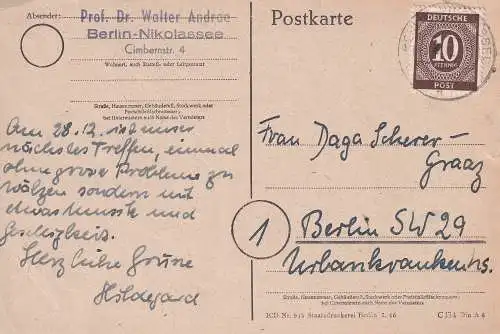 Absender:
Prof. Dr. Walter Andrae
Berlin-Nikolassee
Cimbernstr. 4
Wohnort, auch Zustell- oder Leitpostamt
Straße, Hausnummer, Gebäudeteil, Stockwerk oder
Postschließfachnummer;
bei Untermietern auch Name des Vermieters
Am 28.12. ist unser
nächstes Treffen, einmal
ohne grosse Probleme zu
wälzen sondern mit
etwas Musste und
Geselligkeit.
Herzliche Grüsse
Hildegard
Postkarte
DEUTSCHE
10
PFENNIG
POST
Frau Daga Scherer-
Graaz
1
Berlin SW 29
Urbankrankenhs.
Straße, Hausnummer, Gebäudeteil, Stockwerk oder Postschließfachnummer;
bei Untermietern auch Name des Vermieters
Staatsdruckerei Berlin
C 154 Din A 6